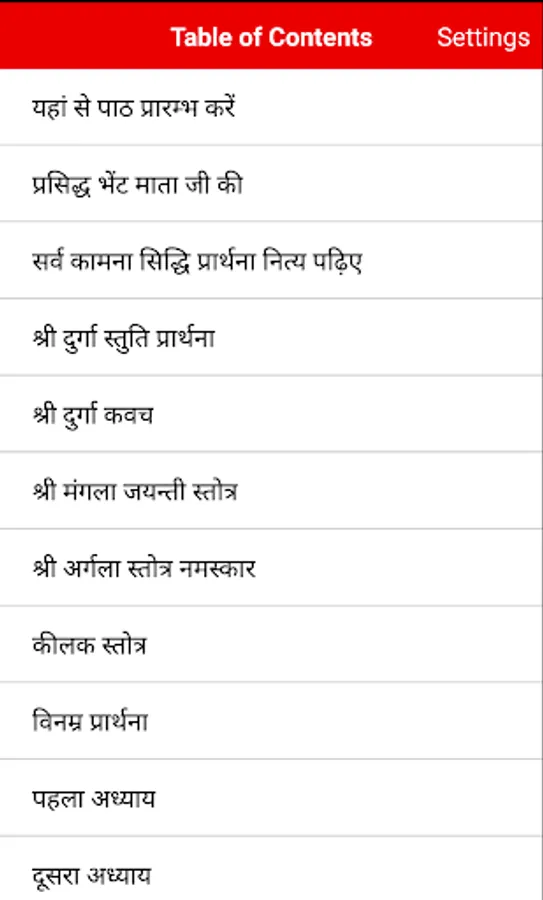 Table of Contents Settings
यहां से पाठ प्रारम्भ करें
प्रसिद्ध भेंट माता जी की
सर्व कामना सिद्धि प्रार्थना नित्य पढ़िए
श्री दुर्गा स्तुति प्रार्थना
श्री दुर्गा कवच
श्री मंगला जयन्ती स्तोत्र
श्री अर्गला स्तोत्र नमस्कार
कीलक स्तोत्र
विनम्र प्रार्थना
पहला अध्याय
दूसरा अध्याय